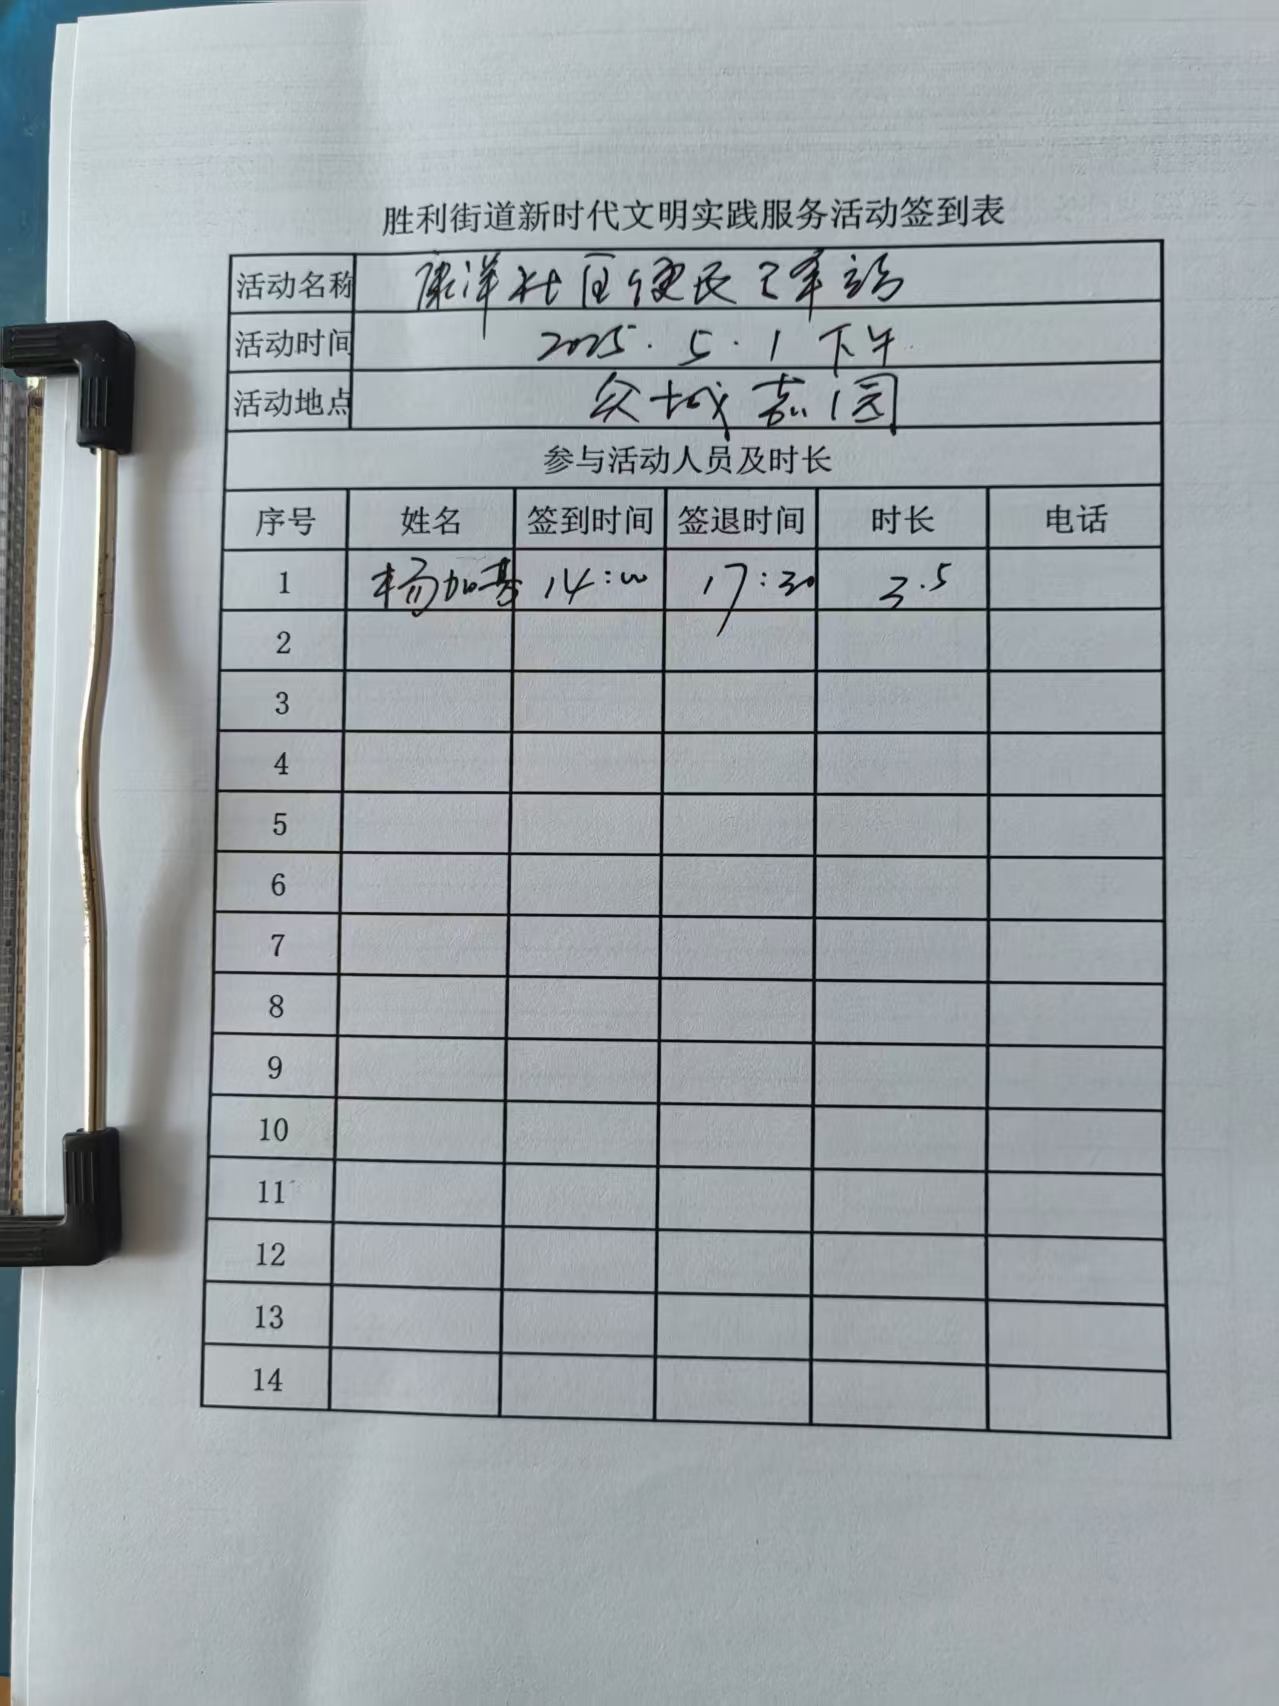 胜利街道新时代文明实践服务活动签到表
活动名称 康洋社区便民工作站
活动时间 2025.5.1 下午
活动地点 众城嘉园
参与活动人员及时长
序号 姓名 签到时间 签退时间 时长 电话
1 杨加基 14:00 17:30 3.5
2
3
4
5
6
7
8
9
10
11
12
13
14